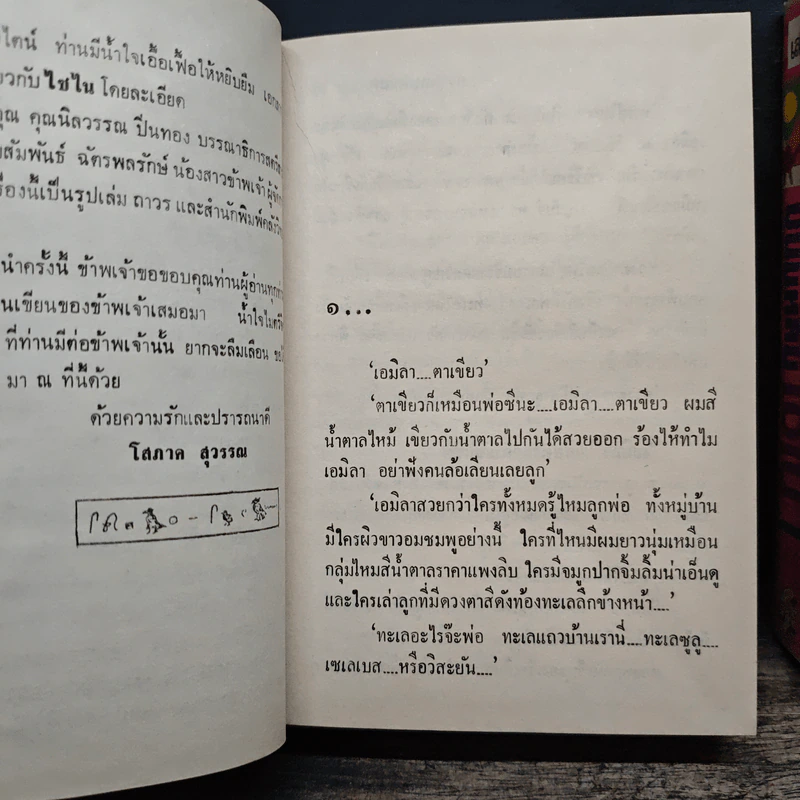 ไตน์ ท่านมีน้ำใจเอื้อเฟื้อให้หยิบยืม
วกับ ไซไน โดยละเอียด
คุณนิลวรรณ ปิ่นทอง บรรณาธิการ
สัมพันธ์ ฉัตรพลรักษ์ น้องสาวข้าพเจ้า
รื่องนี้เป็นรูปเล่ม ถาวร และสำนักพิมพ์
นำครั้งนี้ ข้าพเจ้าขอขอบคุณท่านผู้อ่านทุก
นเขียนของข้าพเจ้าเสมอมา น้ำใจไมตรี
ที่ท่านมีต่อข้าพเจ้านั้น ยากจะลืมเลือน
มา ณ ที่นี้ด้วย
ด้วยความรักและปรารถนาดี
โสภาค สุวรรณ
๑...
‘เอมิลา....ตาเขียว’
‘ตาเขียวก็เหมือนพ่อซีนะ....เอมิลา....ตาเขียว ผมสี
น้ำตาลไหม้ เขียวกับน้ำตาลไปกันได้สวยออก ร้องไห้ทำไม
เอมิลา อย่าฟังคนล้อเลียนเลยลูก’
‘เอมิลาสวยกว่าใครทั้งหมดรู้ไหมลูกพ่อ ทั้งหมู่บ้าน
มีใครผิวขาวอมชมพูอย่างนี้ ใครที่ไหนมีผมยาวนุ่มเหมือน
กลุ่มไหมสีน้ำตาลราคาแพงลิบ ใครมีจมูกปากจิ้มลิ้มน่าเอ็นดู
และใครเล่าลูกที่มีดวงตาสีดังท้องทะเลลึกข้างหน้า....’
‘ทะเลอะไรจ๊ะพ่อ ทะเลแถวบ้านเรานี่....ทะเลซูลู....
เซเลเบส....หรือวิสะยัน....’